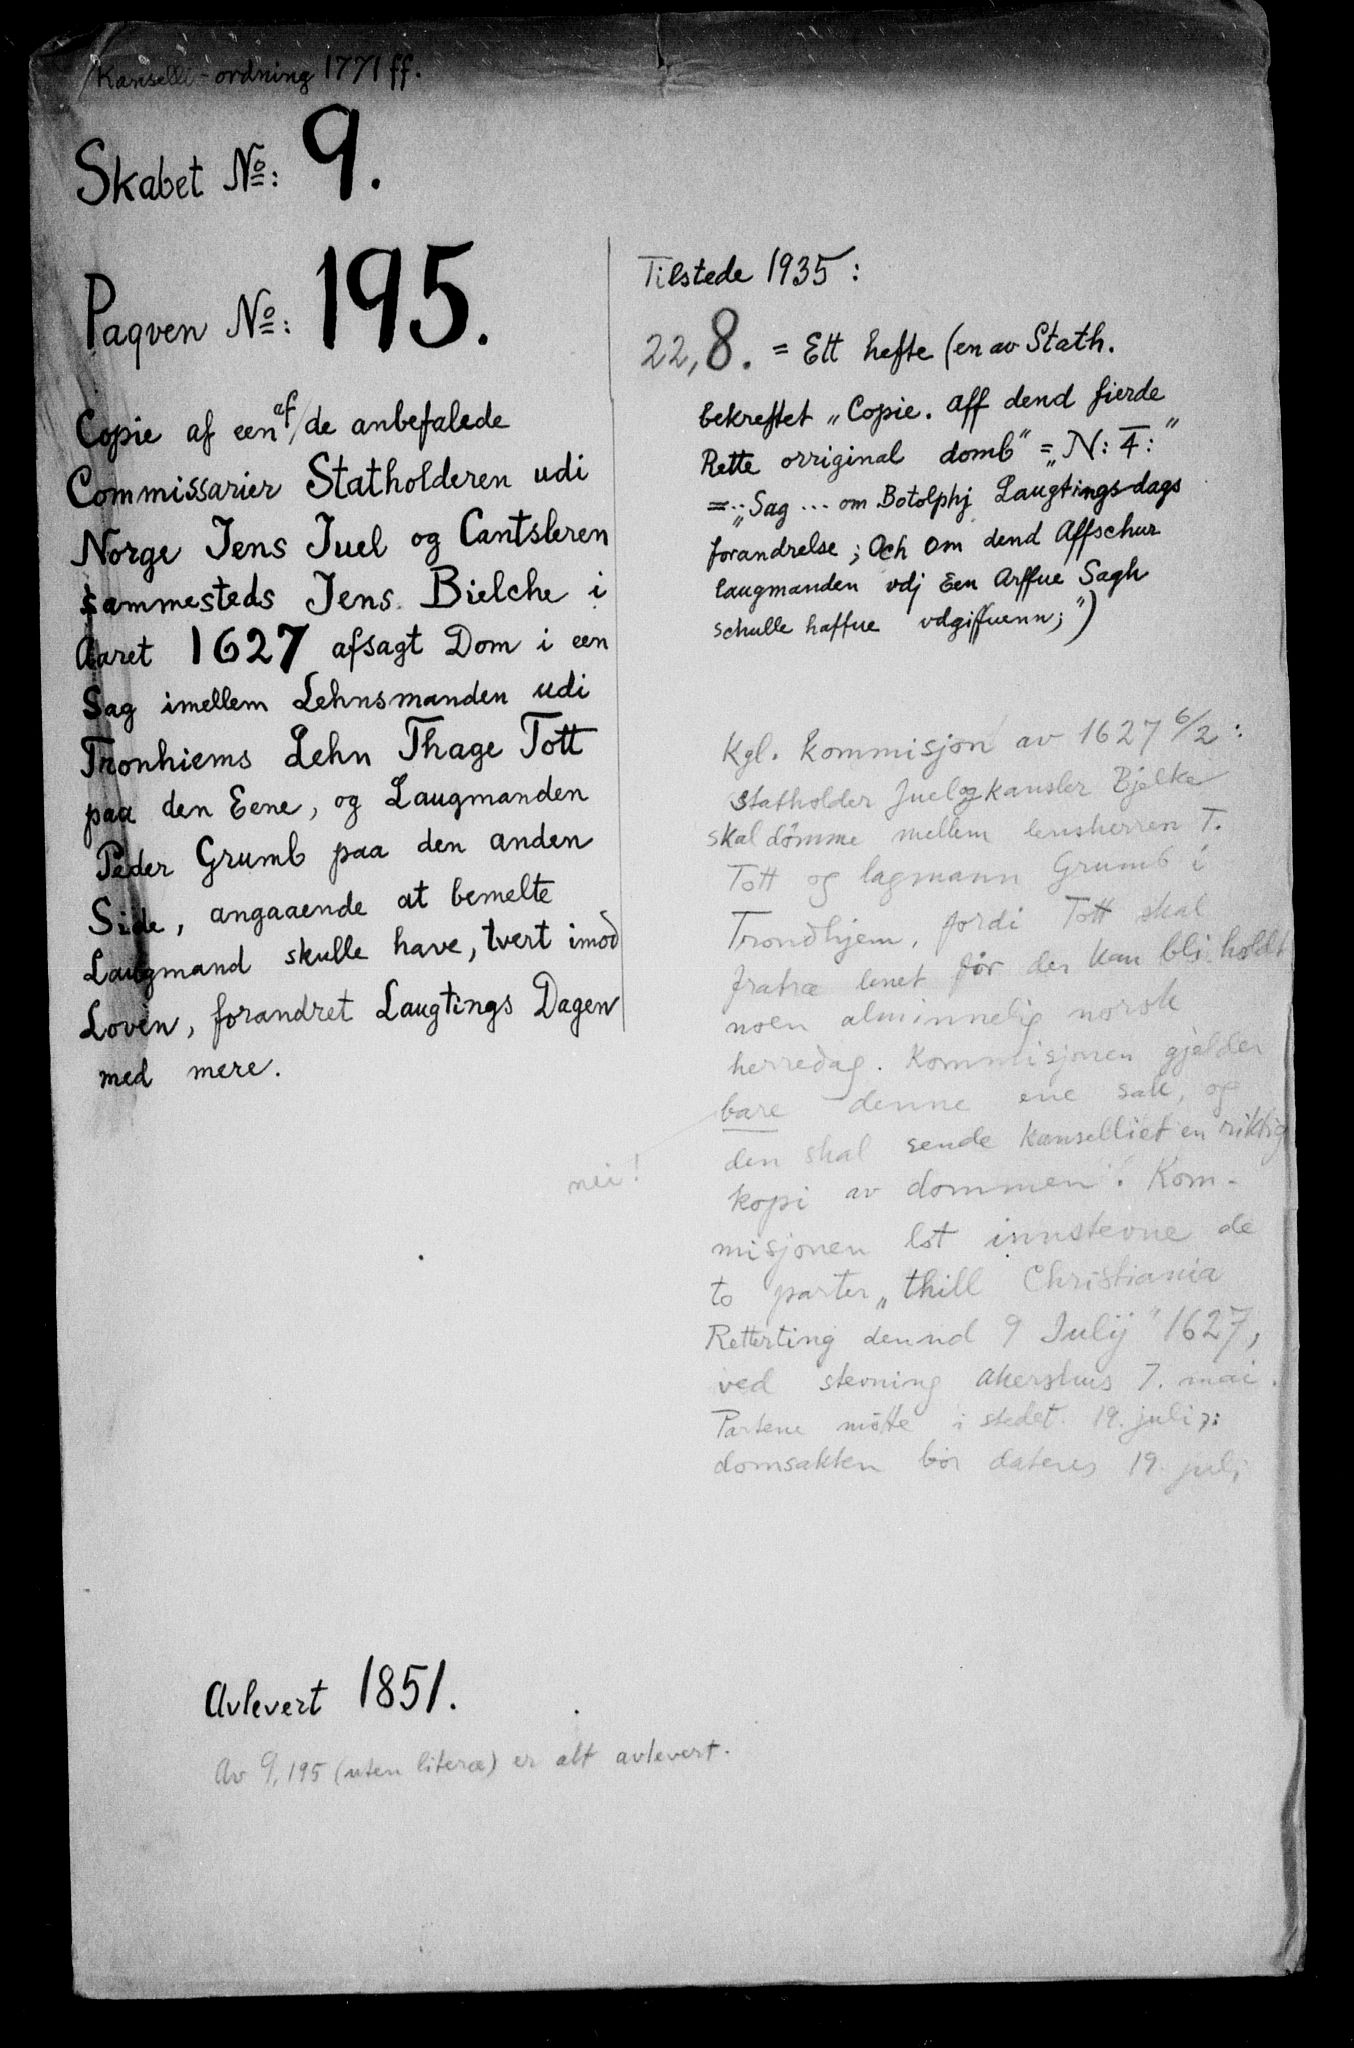 Kanselli-ordning 1771 ff.
Skabet No: 9.
Paqven No: 195.
Copie af een af/de anbefalede
Commissarier Statholderen udi
Norge Jens Juel og Cantsleren
sammesteds Jens Bielche i
Aaret 1627 afsagt Dom i een
Sag imellem Lehnsmanden udi
Tronhiems Lehn Thage Tott
paa den Eene, og Laugmanden
Peder Grumb paa den anden
Side, angaaende at bemelte
Laugmand skulle have, tvert imod
Loven, forandret Laugtings Dagen
med mere.
Tilstede 1935:
22,8. = Ett hefte (en av Stath.
bekreftet „Copie. aff dend fierde
Rette orriginal domb" = „N: 4:"
= „Sag ... om Botolphj Laugtings dags
forandrelse; Och om dend Affschur
laugmanden vdj Een Arffue Sagh
schulle haffue vdgiffuenn;")
Kgl. kommisjon av 1627 6/2:
Statholder Juel og kansler Bjelke
skal dömme mellem lensherren T.
Tott og lagmann Grumb i
Trondhjem, fordi Tott skal
fratræ lenet før der kan bli holdt
noen alminnelig norsk
herredag. Kommisjonen gjelder
bare denne ene sak, og
den skal sende kanselliet en riktig
kopi av dommen. Kom-
nei!
misjonen lot innstevne de
to parter „thill Christiania
Retterting dennd 9 Julij" 1627,
ved stevning Akershus 7. mai.
Partene møtte i stedet 19. juli ɔ:
domsakten bør dateres 19. juli
Avlevert 1851.
Av 9,195 (uten literæ) er alt avlevert.